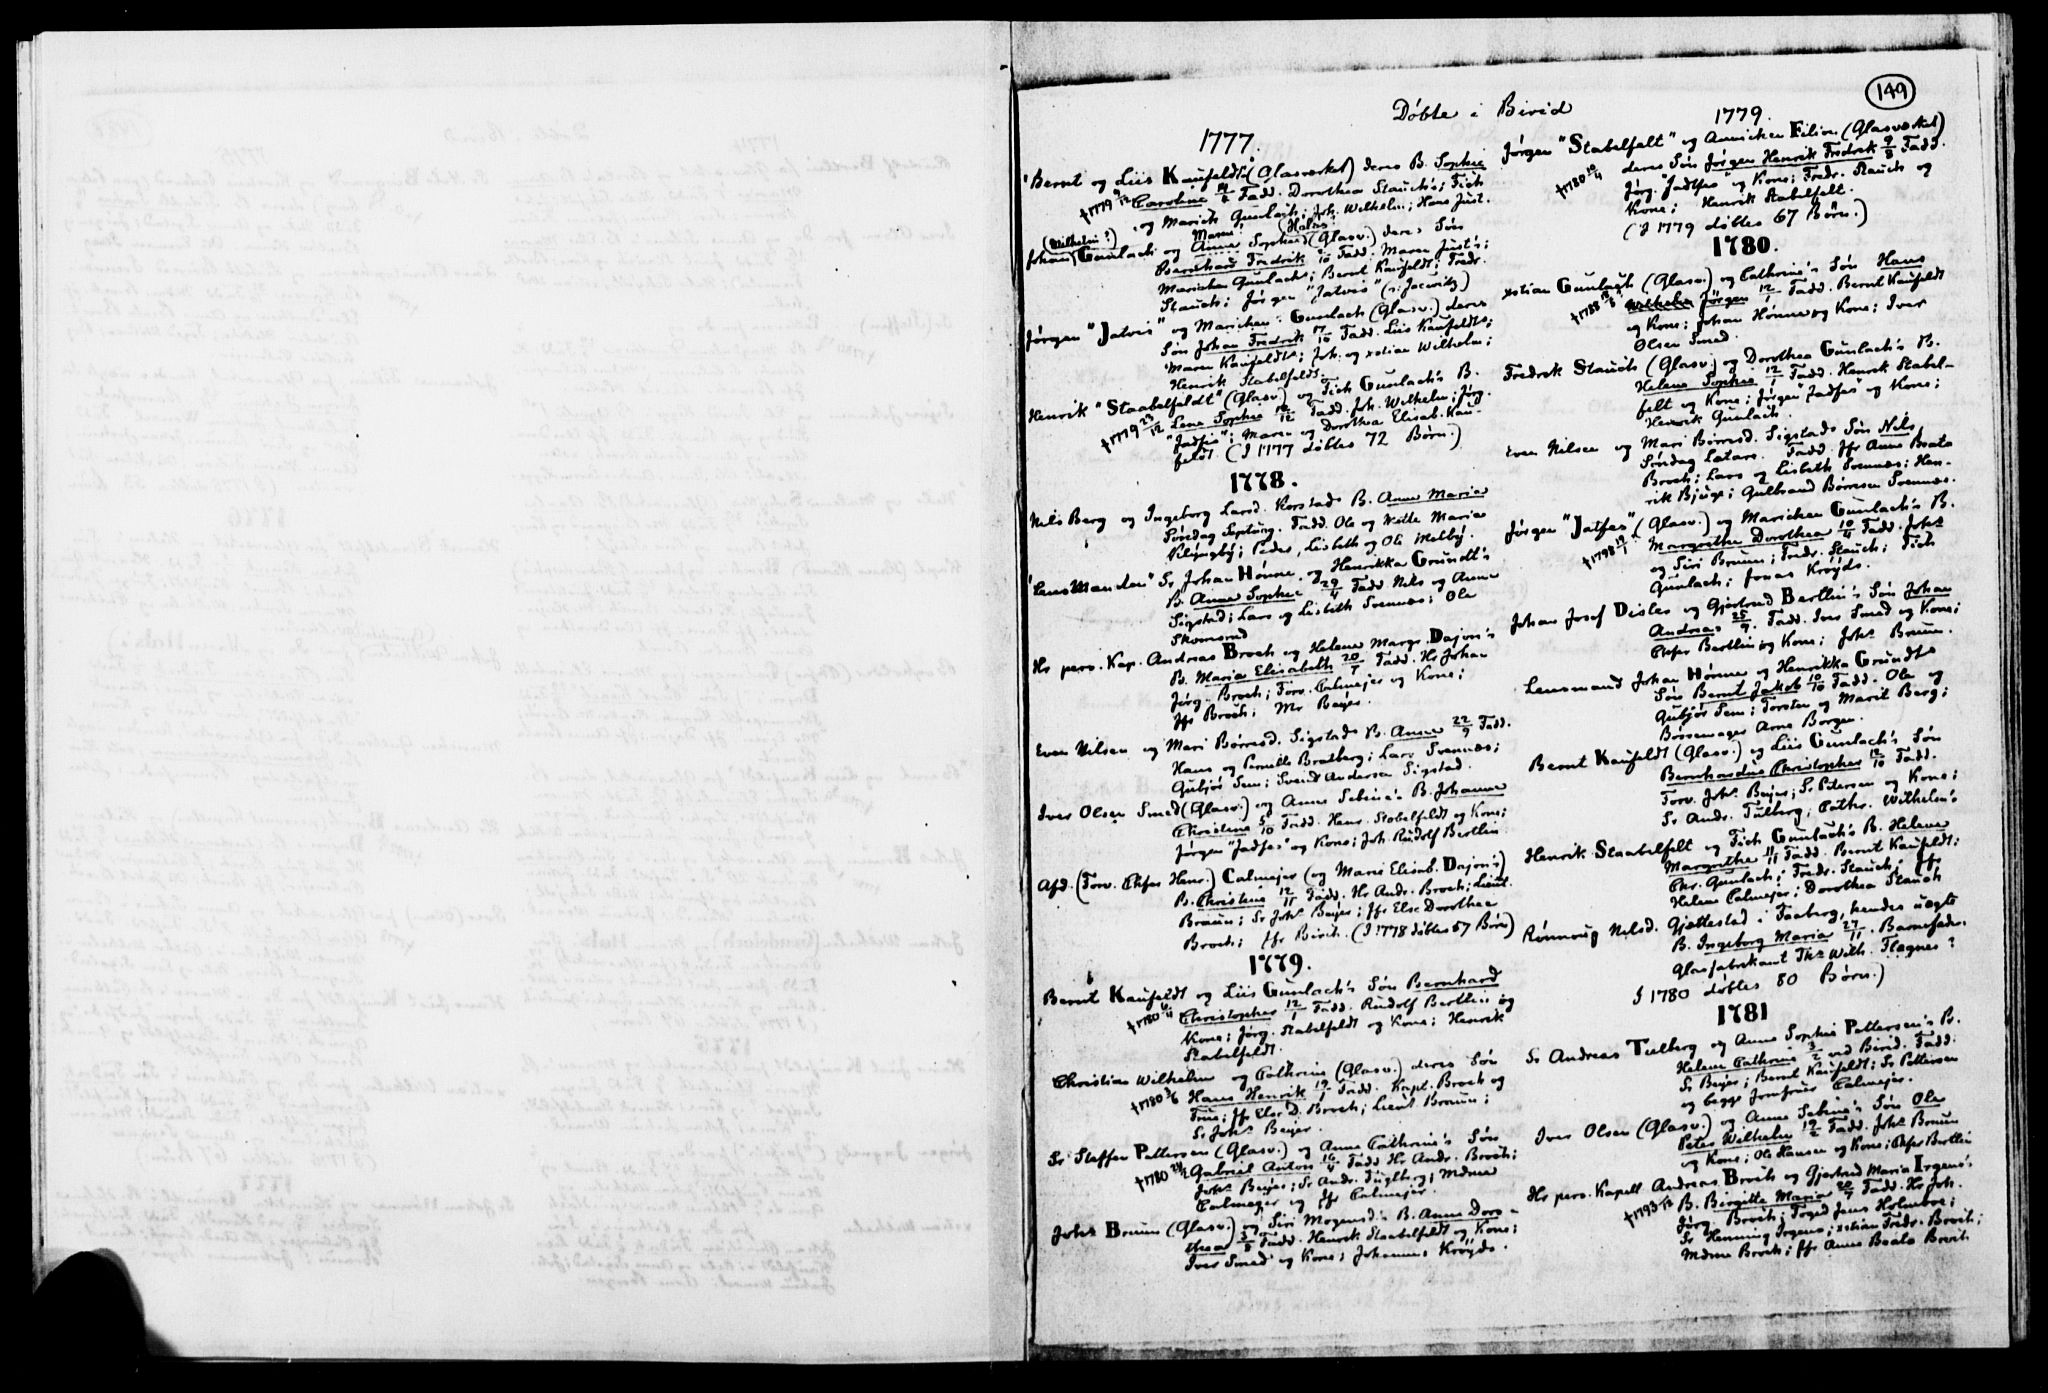 149
Døbte i Birid
1777.
Bernt og Liis Kaufeldt (Glasverket) deres B. Sophie
†1779 Caroline Fadd. Dorothea Stauch's; Fich
og Marich Gunlach; Joh. Wilhelm; Hans Just.
(Wilhelm?) Maren? (Hals:
Johan Gunlach og Anne Sophies (Glasv.) deres Søn
Bernhard Fredrik Fadd. Maren Just's;
Marichen Gunlachs; Bernt Kaufeldt; Fredr.
Stauch; Jørgen "Jatvis"
Jørgen "Jatvis" og Marichen Gunlach (Glasv.) deres
Søn Johan Fredrik 17/10 Fadd. Liis Kaufeldts;
Maren Kaufeldts; Joh. og xstian Wilhelm;
Henrik Stabelfeldt.
Henrik "Staabelfeldt" (Glasv.) og Fich Gunlach's B.
†1779 23/12 Lene Sophie Fadd. Joh. Wilhelm; Jørg.
"Jadfis"; Maren og Dorothea Elisab. Kau-
feldt. (I 1777 døbtes 72 Børn.)
1778.
Nils Berg og Ingeborg Larsd. Korstads B. Anne Maria
Søndag Septuag. Fadd. Ole og Mette Maria
Vilingbÿ; Peder, Lisbeth og Ole Melbÿ.
"Lensmanden" Sr Johan Hønne og Henrikka Grundt's
B. Anne Sophie 29/4 Fadd Nils og Anne
Sigstad; Lars og Lisbeth Svennæs; Ole
Skomsrud
Hr pers. Kap. Andreas Broch og Helene Margr. Dajon's
B. Maria Elisabeth 20/7 Fadd. Hr Johan
Jørg. Broch; Forv. Calmejer og Kone;
Jfr Broch; Mr Beÿer.
Even Nilsen og Mari Børresd. Sigstads B. Anne 22/9 Fadd.
Hans og Pernille Bratberg; Lars Svennæs;
Gubjør Sem; Svend Andersen Sigstad.
Iver Olsen Smed (Glasv.) og Anne Sebine's B. Johanne
Christine 5/10 Fadd. Henr. Stabelfeldt og Kone;
Jørgen "Jadfes" og Kone; Joh. Rudolf Bertlin.
Afd. (Forv. Chfer Henr.) Calmejer (og Marie Elisab. Dajon's)
B. Christine 12/11 Fadd. Hr Andr. Broch; Lieut.
Braun; Sr Johs Beÿer; Jfr Else Dorothea
Broch; Jfr Birch. (I 1778 døbtes 67 Børn)
1779.
Bernt Kaufeldt og Liis Gunlach's Søn Bernhard
†1780 6/4 Christopher 12/1 Fadd. Rudolf Bertlin og
Kone; Jørg. Stabelfeldt og Kone; Henrik
Stabelfeldt.
Christian Wilhelm og Cathrine (Glasv.) deres Søn
†1780 3/6 Hans Henrik 19/1 Fadd. Kapt. Broch og
Frue; Jfr Else D. Broch; Lieut Braun;
Sr Johs Beÿer.
Sr Steffen Pettersen (Glasv.) og Anne Cathrine's Søn
†1780 24/2 Gabriel Anton 16/4 Fadd Hr Andr. Broch;
Johs Beÿer; Sr Andr. Tuglberg; Mdme
Calmejer og Jfr Calmejer.
Johs Bruun (Glasv.) og Siri Mogensd.'s B. Anne Doro-
thea 5/8 Fadd. Henrik Staabelfeldt og Kone;
Iver Smed og Kone; Johannes Krøÿds.
1779.
Jørgen "Stabelfelt" og Annichen Filion (Glasverket)
†1780 deres Søn Jørgen Henrik Fredrik 9/8 Fadd.
Jørg. "Jadfes" og Kone; Fredr. Stauch og
Kone; Henrik Stabelfelt.
(I 1779 døbtes 67 Børn.)
1780.
xstian Gunlach (Glasv.) og Cathrine's Søn Hans
†1788 Wilhelm Jørgen 12/1 Fadd. Bernt Kaufeldt
og Kone; Johan Hønne og Kone; Iver
Olsen Smed.
Fredrek Stauch (Glasv.) og Dorothea Gunlach's B.
Helene Sophie 12/1 Fadd. Henrik Stabel-
felt og Kone; Jørgen "Jadfes" og Kone;
Henrik Gunlach.
Even Nilsen og Mari Børresd. Sigstads Søn Nils
Søndag Lætare. Fadd. Jfr Anne Beata
Broch; Lars og Lisbeth Svennæs; Hen-
rik Bjuge; Gulbrand Børresen Svennæs.
Jørgen "Jatfes" (Glasv.) og Marichen Gunlach's B.
†1798 19/1 Margrethe Dorothea 10/4 Fadd. Johs
og Siri Bruun; Fredr. Stauch; Fich
Gunlach; Jonas Krøÿds.
Johan Josef Disles og Gjertrud Bertlin's Søn Johan
Andreas 25/9. Fadd. Iver Smed og Kone;
Chfer Bertlin og Kone; Johs Bruun.
Lensmand Johan Hønne og Henrikka Grundts
Søn Bernt Jakob 10/10 Fadd. Ole og
Gubjør Sem; Torsten og Marit Berg;
Børsemager Arne Borgen.
Bernt Kaufeldt (Glasv.) og Liis Gunlach's Søn
Bernhardus Christopher Fadd.
Forv. Johs Beÿer; Sr Petersen og Kone;
Sr Andr. Tulberg; Cathr. Wilhelm's
Henrik Staabelfelt og Fich Gunlach's B. Helene
Margrethe 11/11 Fadd. Bernt Kaufeldt;
Chr. Gunlach; Fredr. Stauch; Jfr
Helene Calmejer; Dorothea Stauch
Rønnaug Nilsd. Gjættestad i Faaberg, hendes uægte
B. Ingeborg Maria 27/11. Barnefader
Glasfabrikant Ths Wilh. Flagnes?
I 1780 døbtes 80 Børn.)
1781
Sr Andreas Tulberg og Anne Sophie Pettersen's B.
Helene Cathrine 3/2 ved Birid. Fadd.
Sr Beÿer; Bernt Kaufeldt; Sr Pettersen
og begge Jomfruer Calmejer.
Iver Olsen (Glasv.) og Anne Sebine's Søn Ole
Peter Wilhelm 19/2 Fadd. Johs Bruun
og Kone; Ole Hansen og Kone; Chfer Bertlin
Hr pers. Kapell Andreas Broch og Gjertrud Maria Irgens's
†1793 B. Birgitte Maria 20/7 Fadd. Hr Joh.
Jørg. Broch; Foged Jens Holmboe;
Sr Henning Irgens; xstian Fredr. Broch;
Mdme Broch; Jfr Anne Beata Broch.